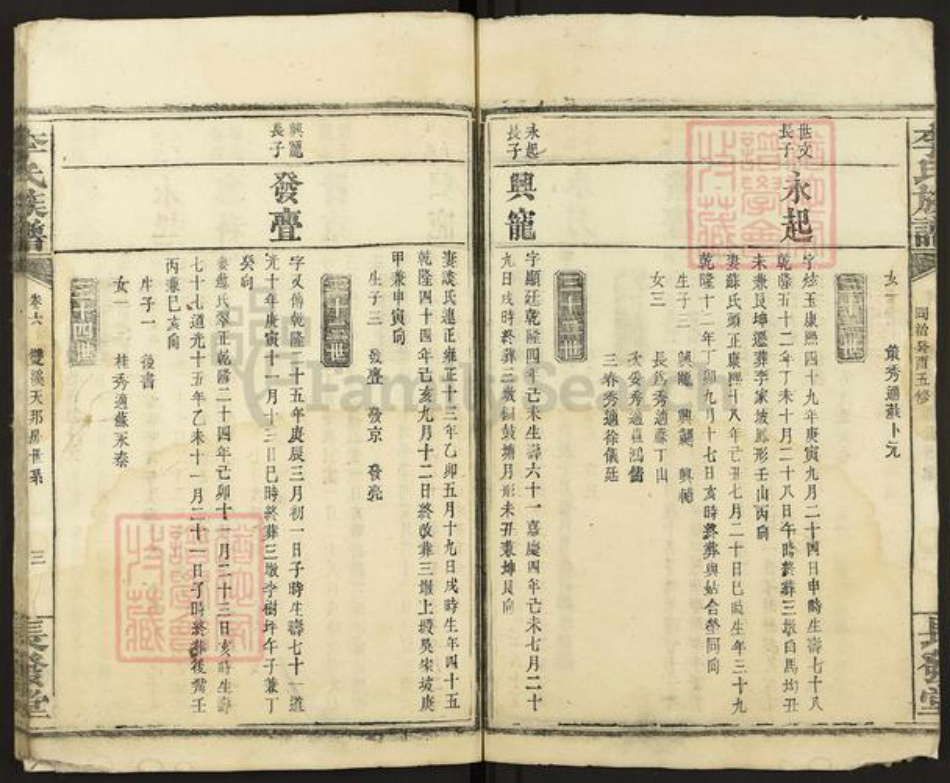 李氏族譜
同治癸酉五修
長發堂
女一
策秀適蘇卜元
三十一世
世文長子
永起
字炫玉康熙四十九年庚寅九月二十四日申時生壽七十八
乾隆五十二年丁未十月二十八日午時終葬三墩白馬坳丑
未兼艮坤遷葬李家坡鳳形壬山丙向
妻蘇氏頭正康熙四十八年己丑七月二十日巳時生年三十九
乾隆十二年丁卯九月十七日亥時終葬與姑合塋同向
生子三
興龍 興 興
女三
長 秀適蘇丁山
次妥秀適 鴻儒
三春秀適徐儀廷
三十二世
永起長子
興龍
字顯廷乾隆四年己未生壽六十一嘉慶四年己未七月二十
九日戌時終葬三墩銅鼓塘月形未丑兼坤艮向
妻談氏連正雍正十三年乙卯五月十九日戌時生年四十五
乾隆四十四年己亥九月十二日終改葬三墩上塅吳宋坡庚
甲兼申寅向
生子三
發疊 發京 發堯
三十三世
興龍長子
發疊
字又傳乾隆二十五年庚辰三月初一日子時生壽七十一道
光十年庚寅十一月十三日巳時終葬三墩李樹坪午子兼丁
癸向
妻蘇氏翠正乾隆二十四年己卯十一月二十三日亥時生壽
七十七道光十五年乙未十一月二十一日子時終葬後觜壬
丙兼巳亥向
生子一
後書
女一
桂秀適蘇永泰
三十四世
李氏族譜
卷六
雙溪天那房世系
三
長發堂
FamilySearch